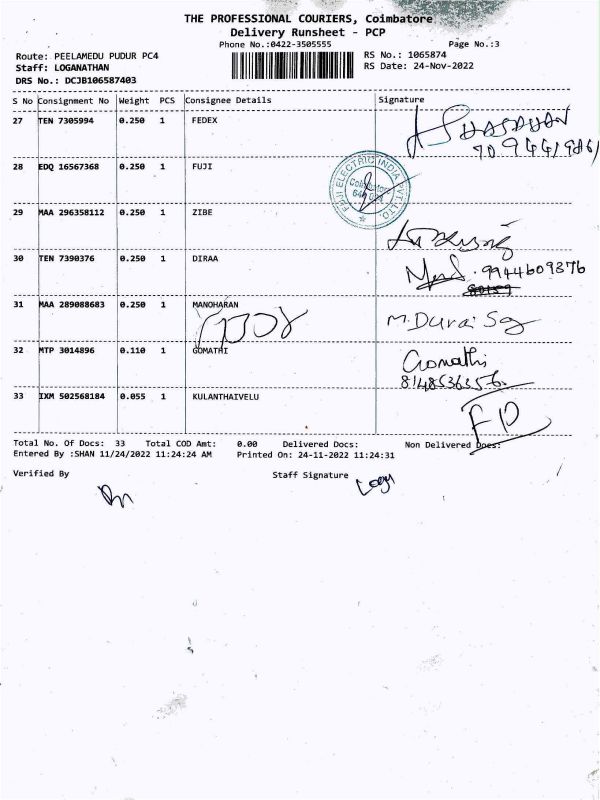 THE PROFESSIONAL COURIERS, Coimbatore
Delivery Runsheet - PCP
Phone No.:0422-3505555 Page No.:3
Route: PEELAMEDU PUDUR PC4 RS No.: 1065874
Staff: LOGANATHAN RS Date: 24-Nov-2022
DRS No.: DCJB106587403
S No Consignment No Weight PCS Consignee Details Signature
27 TEN 7305994 0.250 1 FEDEX
28 EDQ 16567368 0.250 1 FUJI
FUJI ELECTRIC INDIA PVT.LTD.
Coimbatore
29 MAA 296358112 0.250 1 ZIBE
30 TEN 7390376 0.250 1 DIRAA
9944609376
31 MAA 289088683 0.250 1 MANOHARAN
M.Durai
32 MTP 3014896 0.110 1 GOMATHI Gomathi
8148536356
33 IXM 502568184 0.055 1 KULANTHAIVELU
Total No. Of Docs: 33 Total COD Amt: 0.00 Delivered Docs: Non Delivered Docs:
Entered By :SHAN 11/24/2022 11:24:24 AM Printed On: 24-11-2022 11:24:31
Verified By Staff Signature
Logu